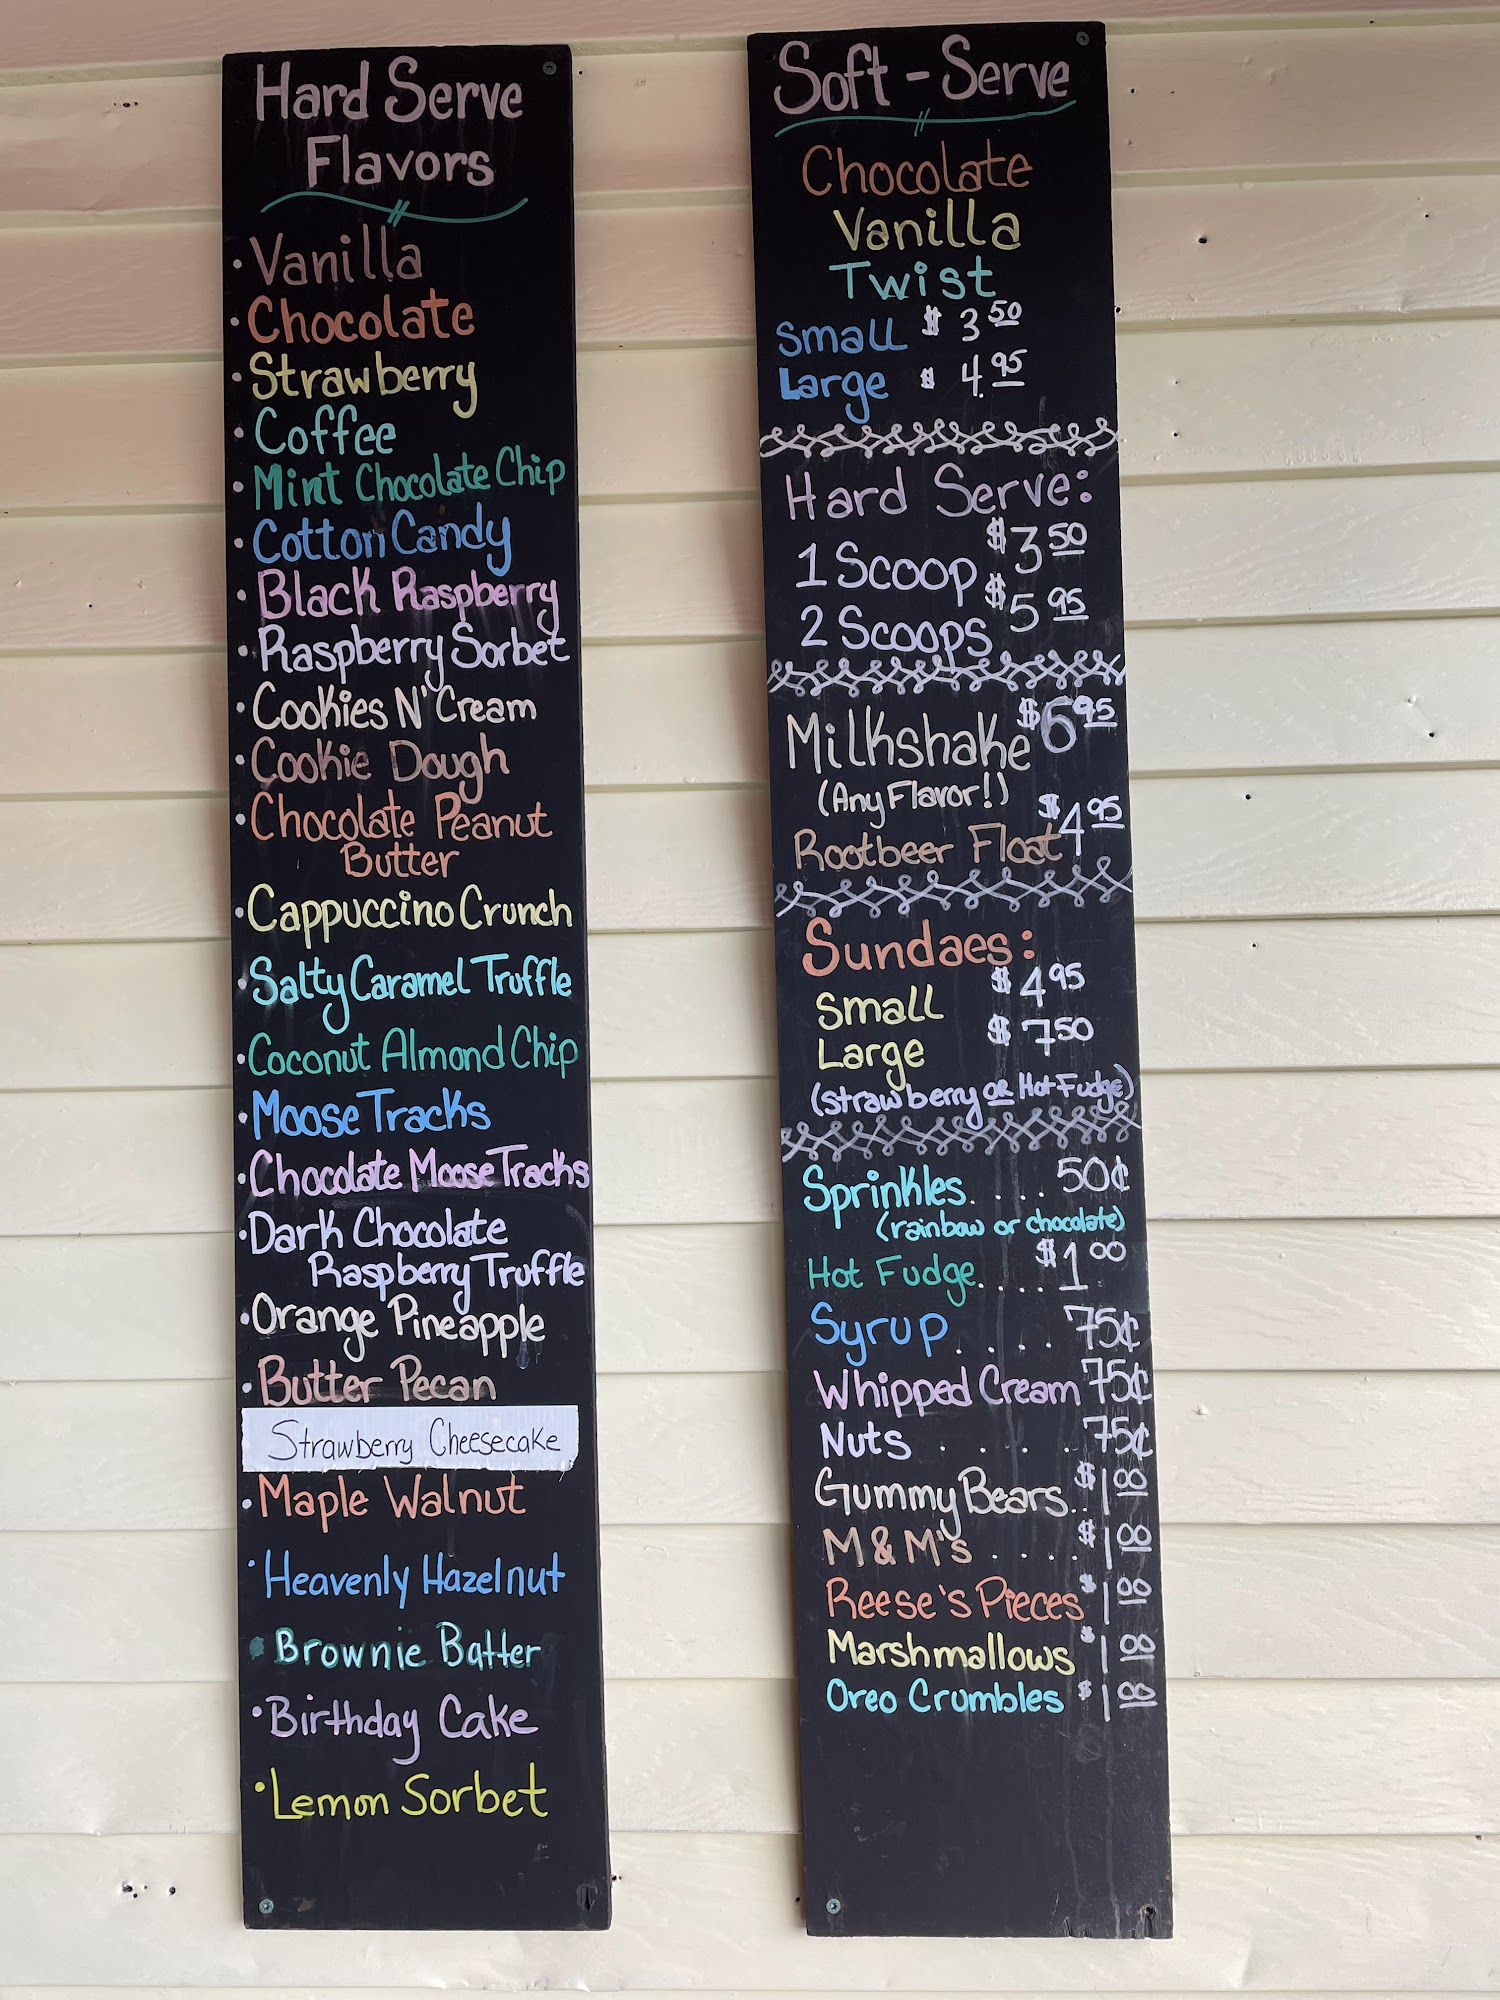 Hard Serve
Flavors
• Vanilla
• Chocolate
• Strawberry
• Coffee
• Mint Chocolate Chip
• Cotton Candy
• Black Raspberry
• Raspberry Sorbet
• Cookies N' Cream
• Cookie Dough
• Chocolate Peanut
Butter
• Cappuccino Crunch
• Salty Caramel Truffle
• Coconut Almond Chip
• Moose Tracks
• Chocolate Moose Tracks
• Dark Chocolate
Raspberry Truffle
• Orange Pineapple
• Butter Pecan
Strawberry Cheesecake
• Maple Walnut
• Heavenly Hazelnut
• Brownie Batter
• Birthday Cake
• Lemon Sorbet
Soft-Serve
Chocolate
Vanilla
Twist
Small $ 3 50
Large $ 4.95
Hard Serve:
1 Scoop $3 50
2 Scoops $5 95
Milkshake $6 95
(Any Flavor!)
Rootbeer Float $4 95
Sundaes:
Small $ 4 95
Large $ 7 50
(strawberry OR Hot Fudge)
Sprinkles.... 50¢
(rainbow or chocolate)
Hot Fudge.... $1 00
Syrup.... 75¢
Whipped Cream 75¢
Nuts.... 75¢
Gummy Bears.. $1 00
M & M's.... $1 00
Reese's Pieces $1 00
Marshmallows $1 00
Oreo Crumbles $1 00